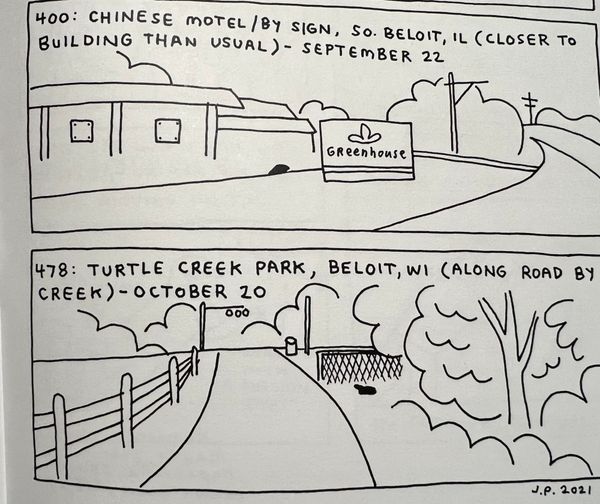 400: CHINESE MOTEL/BY SIGN, SO. BELOIT, IL (CLOSER TO
BUILDING THAN USUAL) - SEPTEMBER 22
GReenhouse
478: TURTLE CREEK PARK, BELOIT, WI (ALONG ROAD BY
CREEK) - OCTOBER 20
J.P. 2021